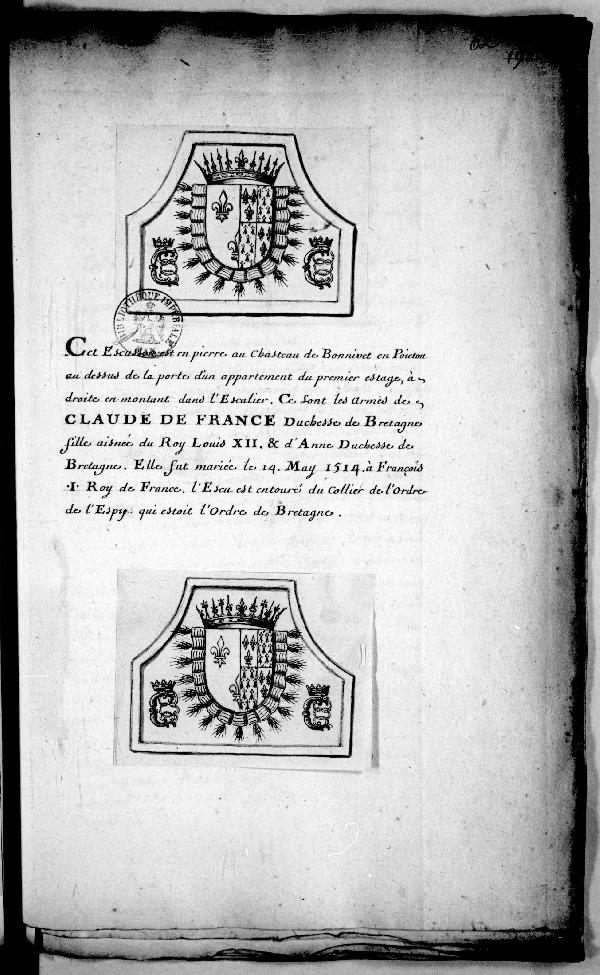 BIBLIOTHEQUE IMPERIALE
Cet Escusson est en pierre au Chasteau de Bonnivet en Poictou
au dessus de la porte d'un appartement du premier estage, à
droite en montant dans l'Escalier. Ce sont les armes de
CLAUDE DE FRANCE Duchesse de Bretagne
fille aisnée du Roy Louis XII. & d'Anne Duchesse de
Bretagne. Elle fut mariée le 14. May 1514. à François
·I· Roy de France. l'Escu est entouré du Collier de l'Ordre
de l'Espy. qui estoit l'Ordre de Bretagne.